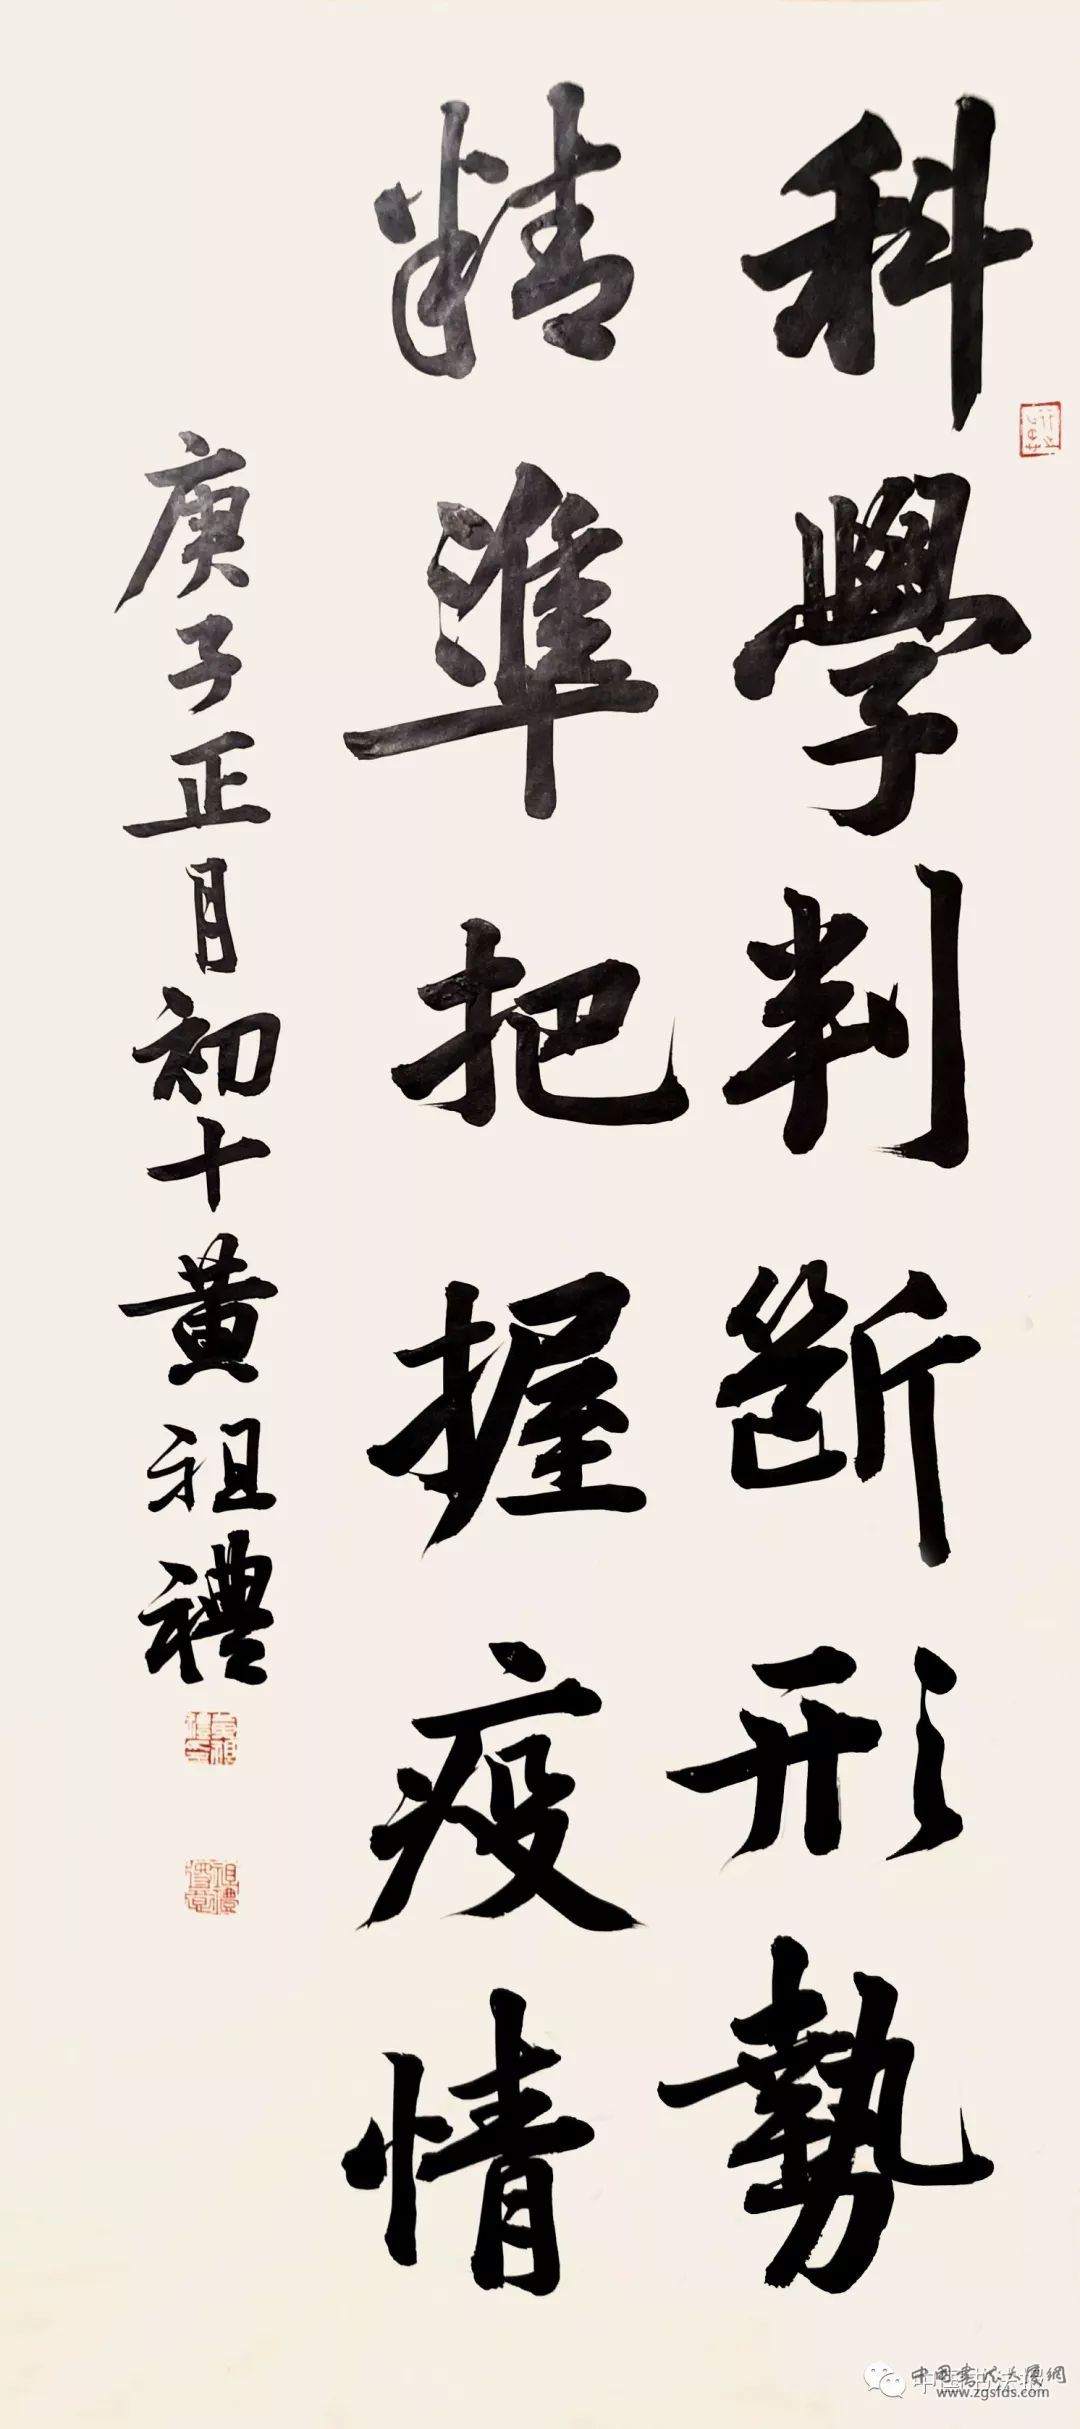 科學判斷形勢
精準把握疫情
庚子正月初十黃祖禮
中国书法大厦網
www.zgsfds.com